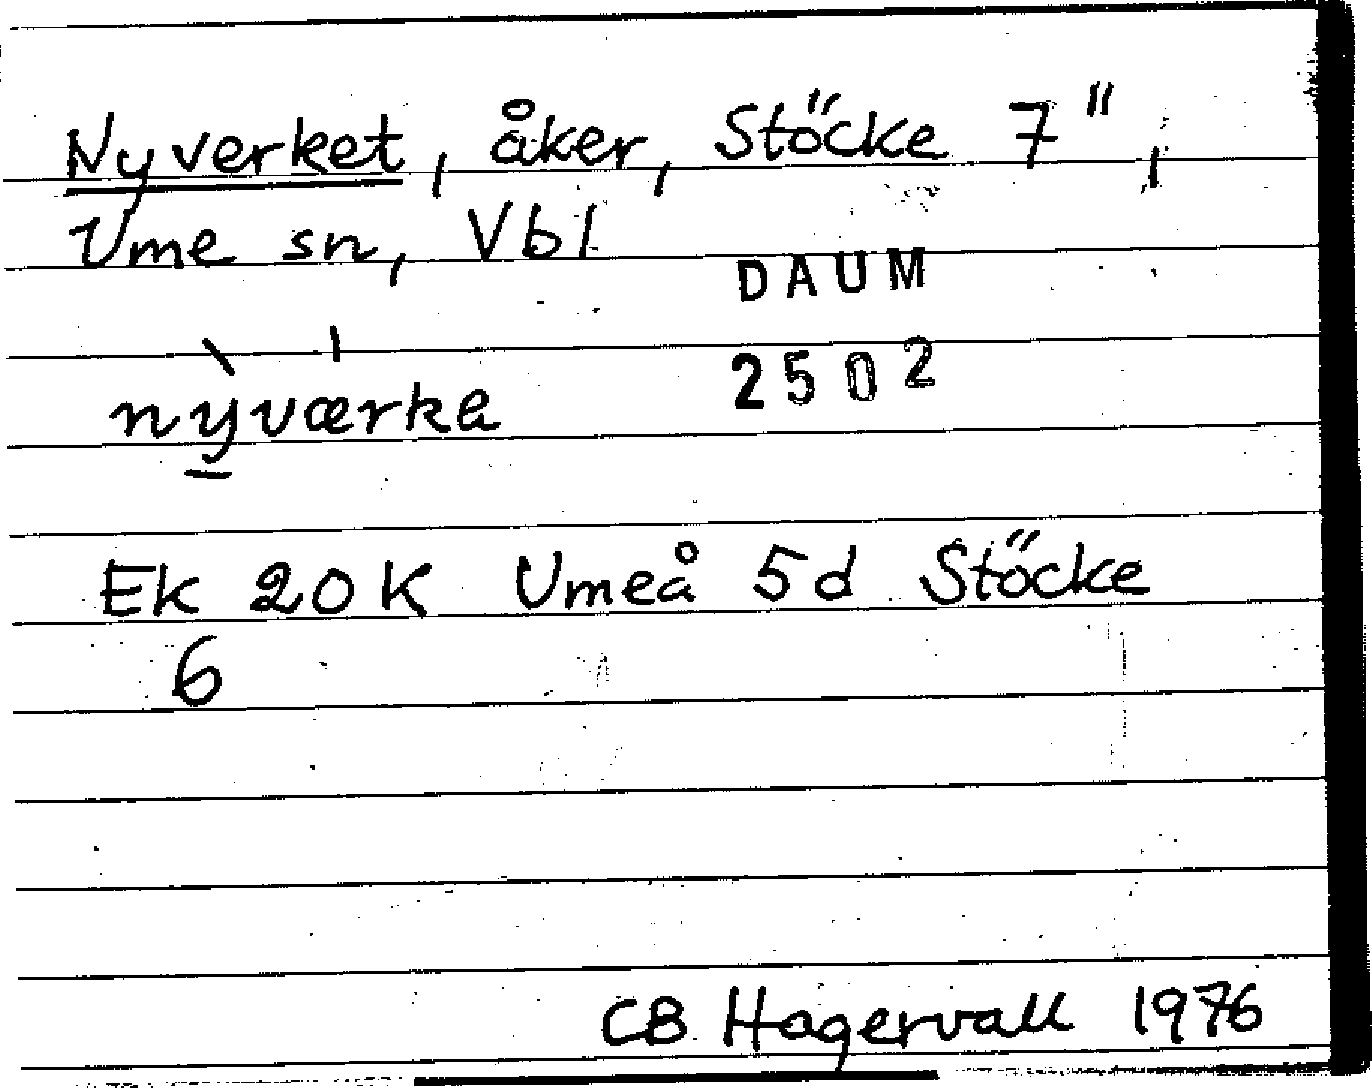 Nyverket, åker, Stöcke 7",
Ume sn, Vbl
DAUM
2502
nỳværka
Ek 20K Umeå 5d Stöcke
6
CB Hagervall 1976